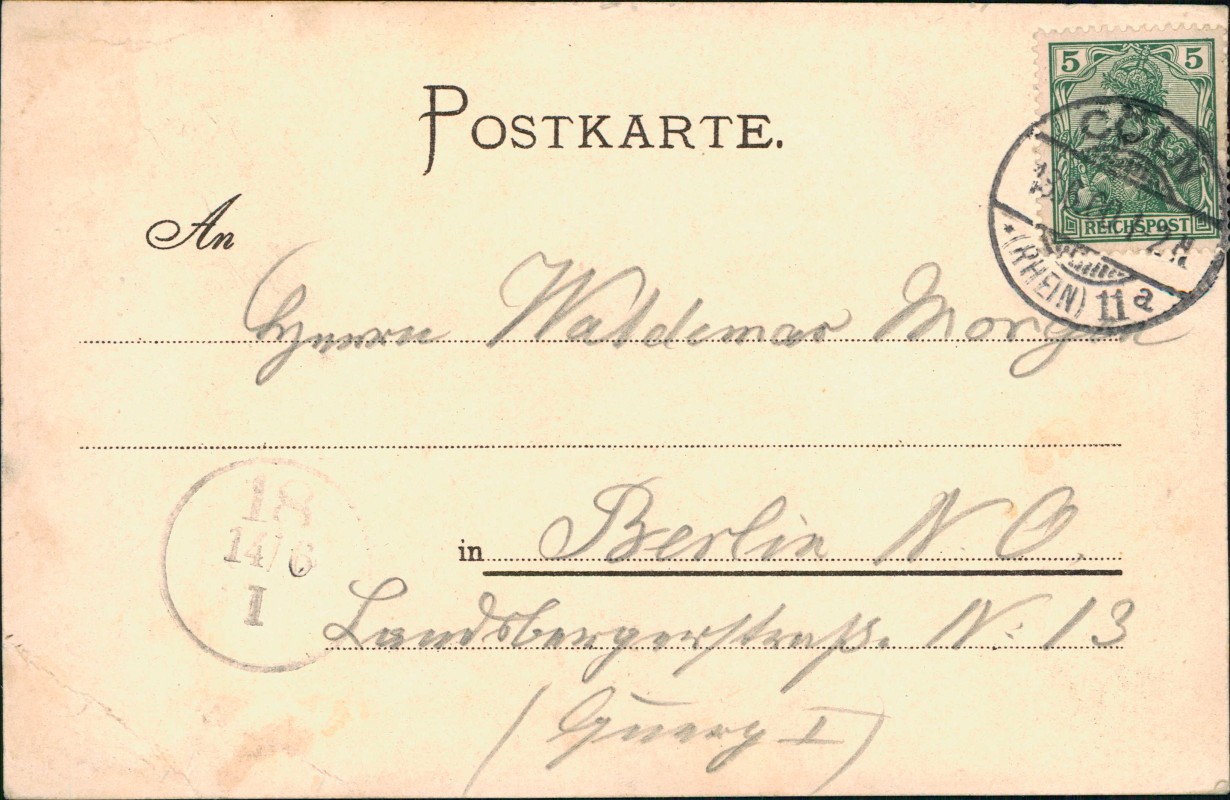 5 5
REICHSPOST
CÖLN
13.6.00. 1-2N.
*(RHEIN) 11a
POSTKARTE.
An
Herrn Waldemar Morgen
18
14/6
I
in Berlin N. O.
Landsbergerstraße N: 13
( I )